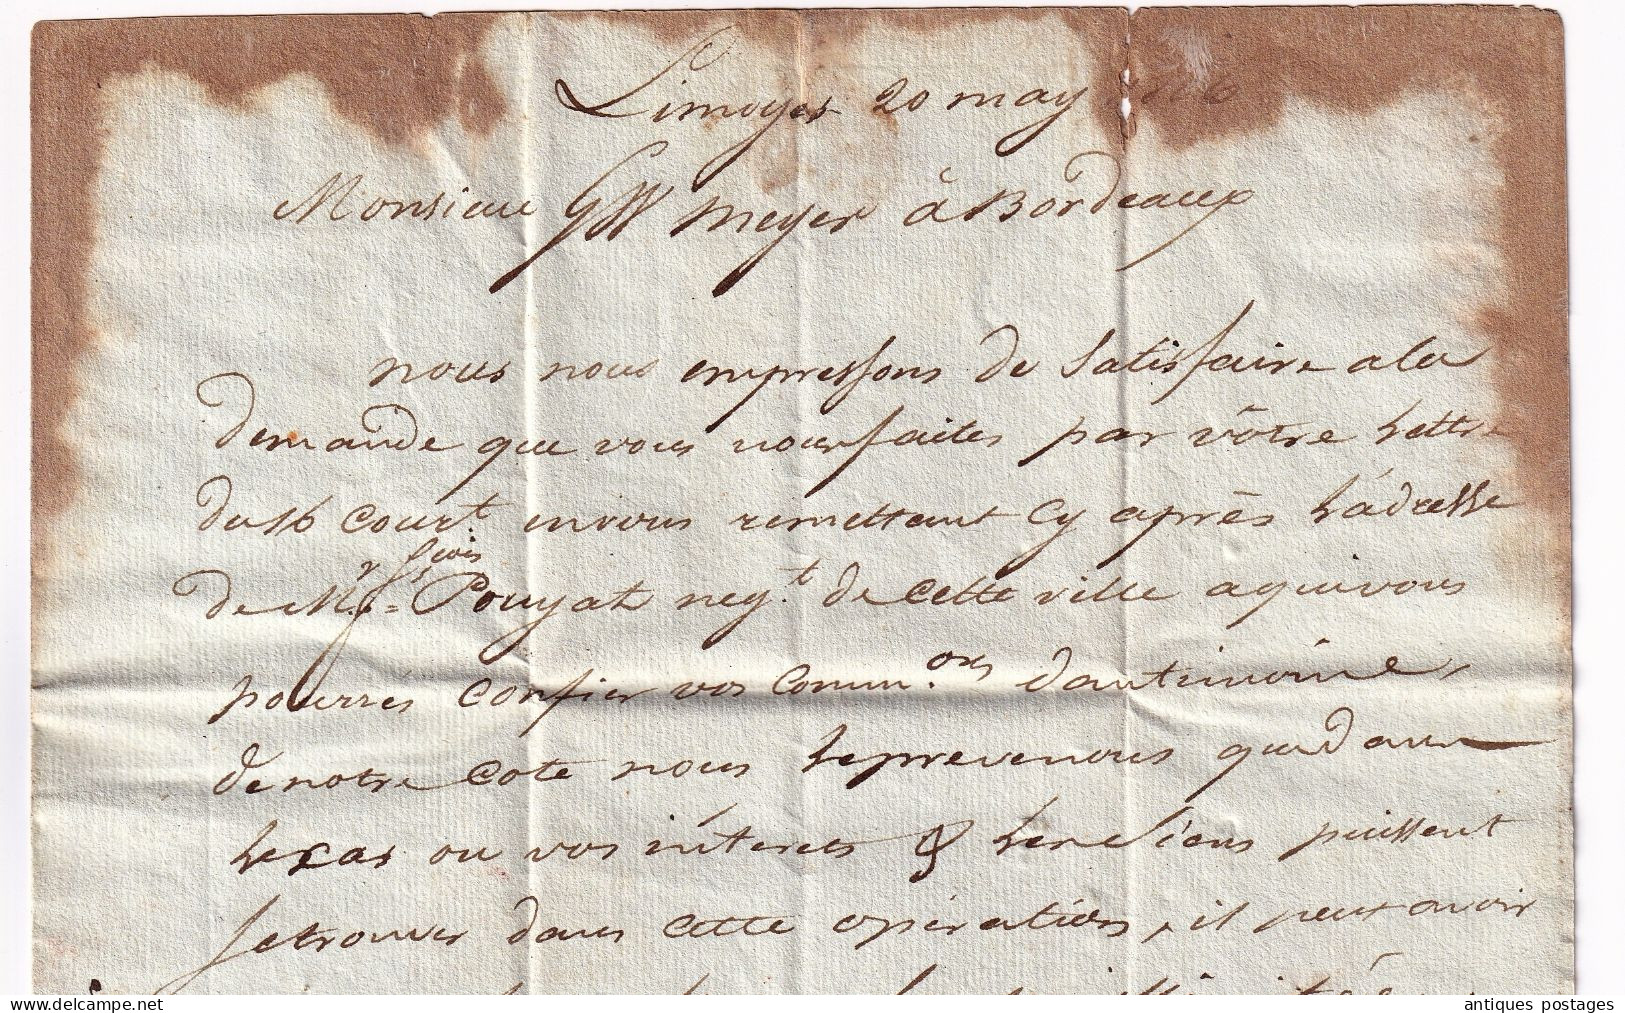 Limoges 20 may
Monsieur GW meyer à Bordeaux
nous nous empressons de Satisfaire a la
demande que vous nous faites par vôtre Lettre
du 16 cour.t en vous remettant cy après L'adresse
de M.r f.cois Pouyat neg.t de cette ville a qui vous
pourrés confier vos Comm.ons d'antimoine,
de notre coté nous le prevenons que dans
le cas ou vos intérets & les siens puissent
se trouver dans cette opération, il peut avoir
antiques postages